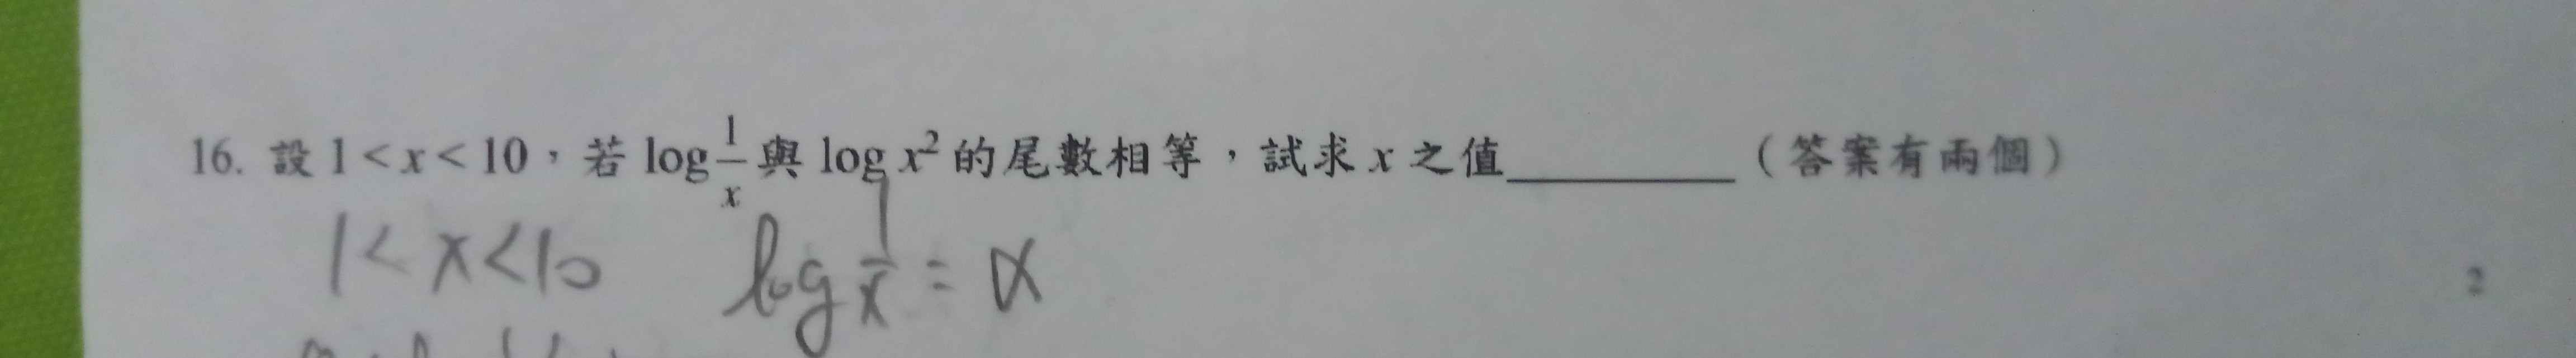 16. 設 1 < x < 10，若 log 1/x 與 log x² 的尾數相等，試求 x 之值________（答案有兩個）
1 < x < 10 log 1/x = α
2